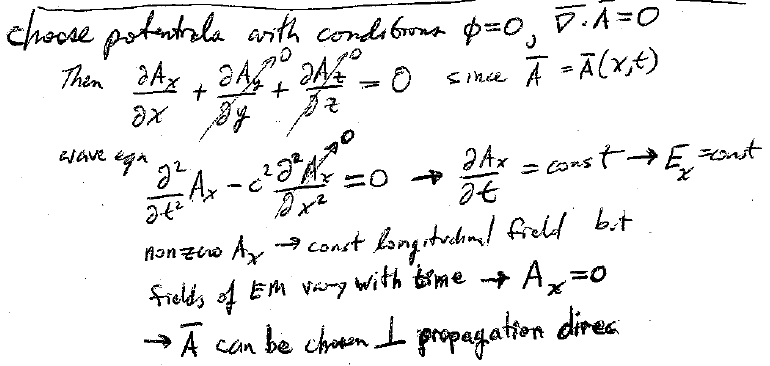 choose potentials with conditions ϕ=0, ∇̅·A̅=0
Then ∂Aₓ/∂x + ∂A_y/∂y→0 + ∂A_z/∂z→0 = 0 since A̅ = A̅(x,t)
wave eqn ∂²/∂t² Aₓ - c² ∂²Aₓ/∂x²→0 = 0 → ∂Aₓ/∂t = const → Eₓ = const
nonzero Aₓ → const longitudinal field but
fields of EM vary with time → Aₓ=0
→ A̅ can be chosen ⊥ propagation direc